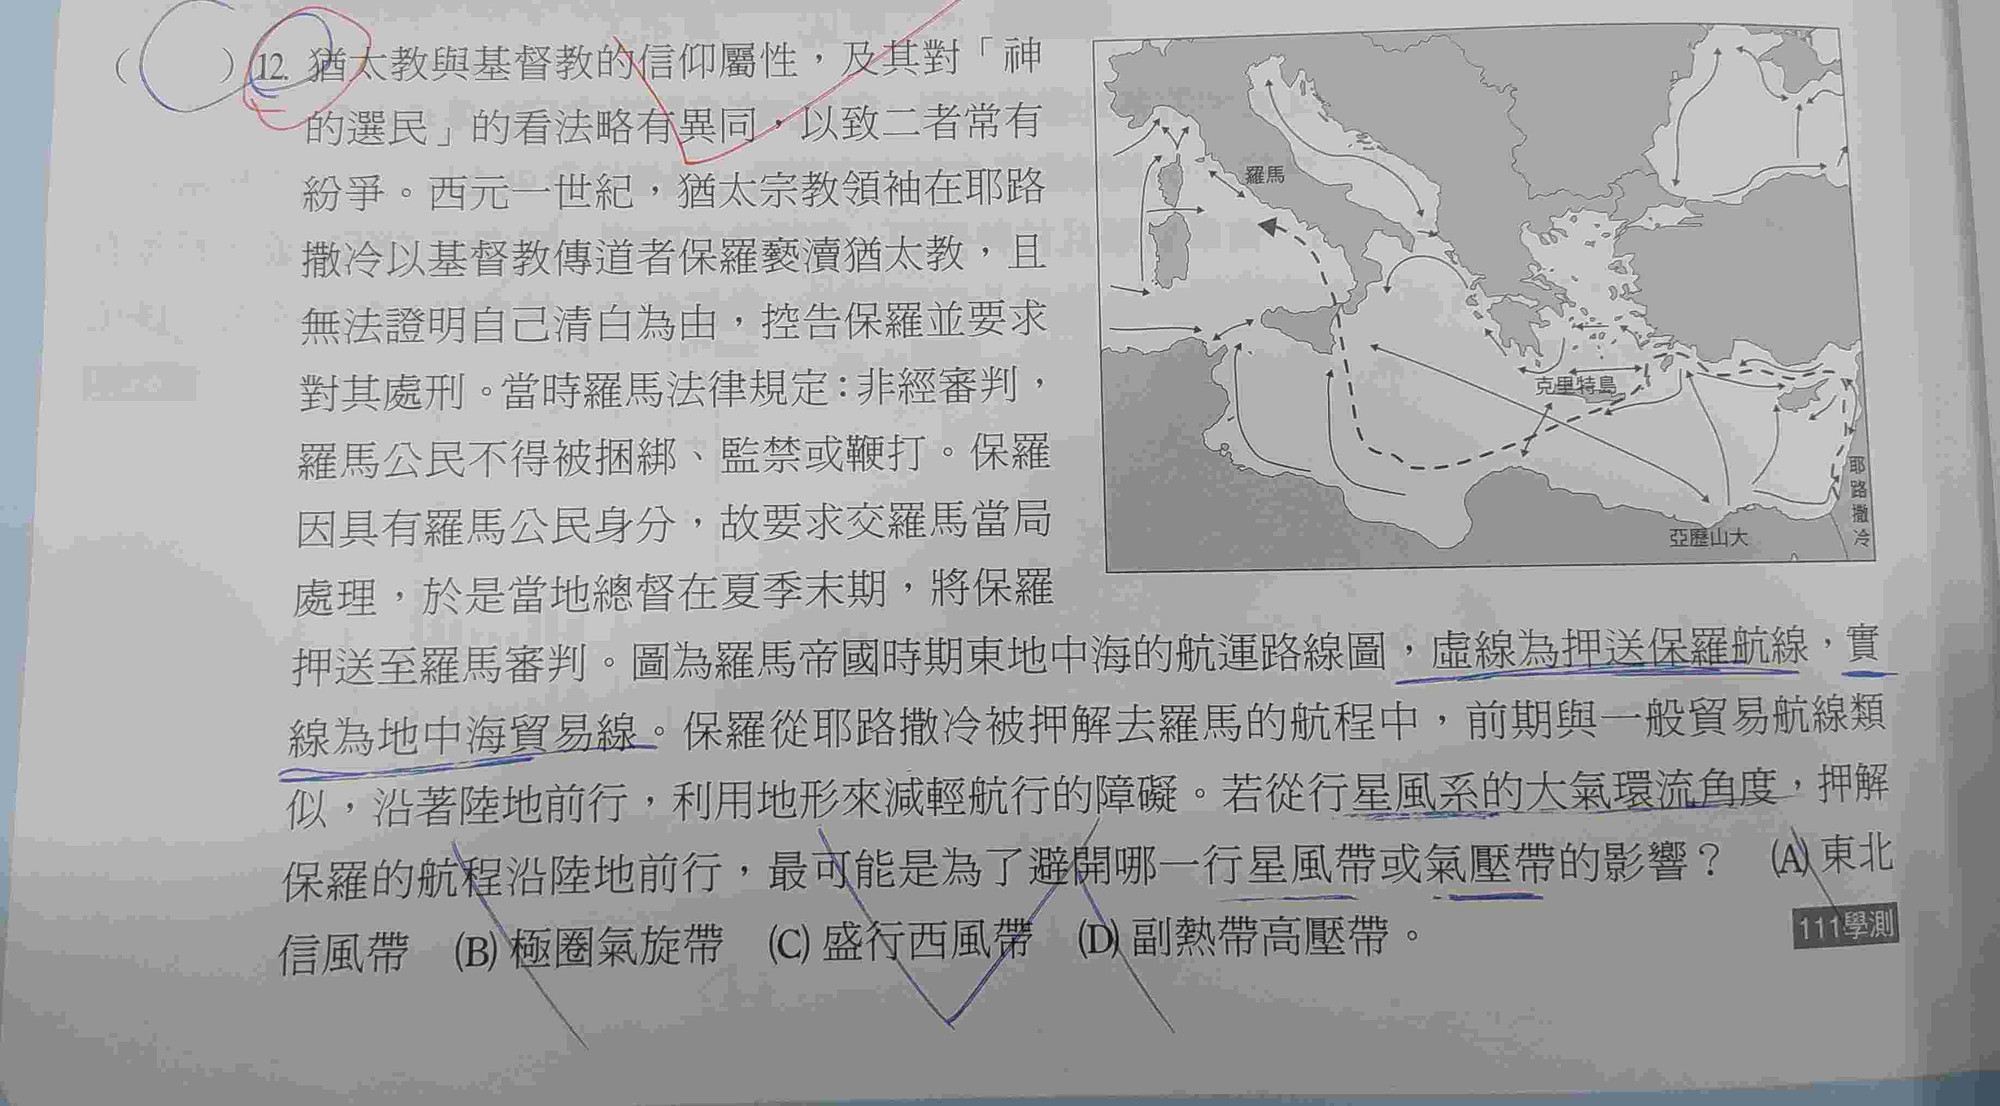 ( ) 12. 猶太教與基督教的信仰屬性，及其對「神
的選民」的看法略有異同，以致二者常有
紛爭。西元一世紀，猶太宗教領袖在耶路
撒冷以基督教傳道者保羅褻瀆猶太教，且
無法證明自己清白為由，控告保羅並要求
對其處刑。當時羅馬法律規定：非經審判，
羅馬公民不得被捆綁、監禁或鞭打。保羅
因具有羅馬公民身分，故要求交羅馬當局
處理，於是當地總督在夏季末期，將保羅
押送至羅馬審判。圖為羅馬帝國時期東地中海的航運路線圖，虛線為押送保羅航線，實
線為地中海貿易線。保羅從耶路撒冷被押解去羅馬的航程中，前期與一般貿易航線類
似，沿著陸地前行，利用地形來減輕航行的障礙。若從行星風系的大氣環流角度，押解
保羅的航程沿陸地前行，最可能是為了避開哪一行星風帶或氣壓帶的影響？ (A) 東北
信風帶 (B) 極圈氣旋帶 (C) 盛行西風帶 (D) 副熱帶高壓帶。
111學測
羅馬
克里特島
耶路撒冷
亞歷山大